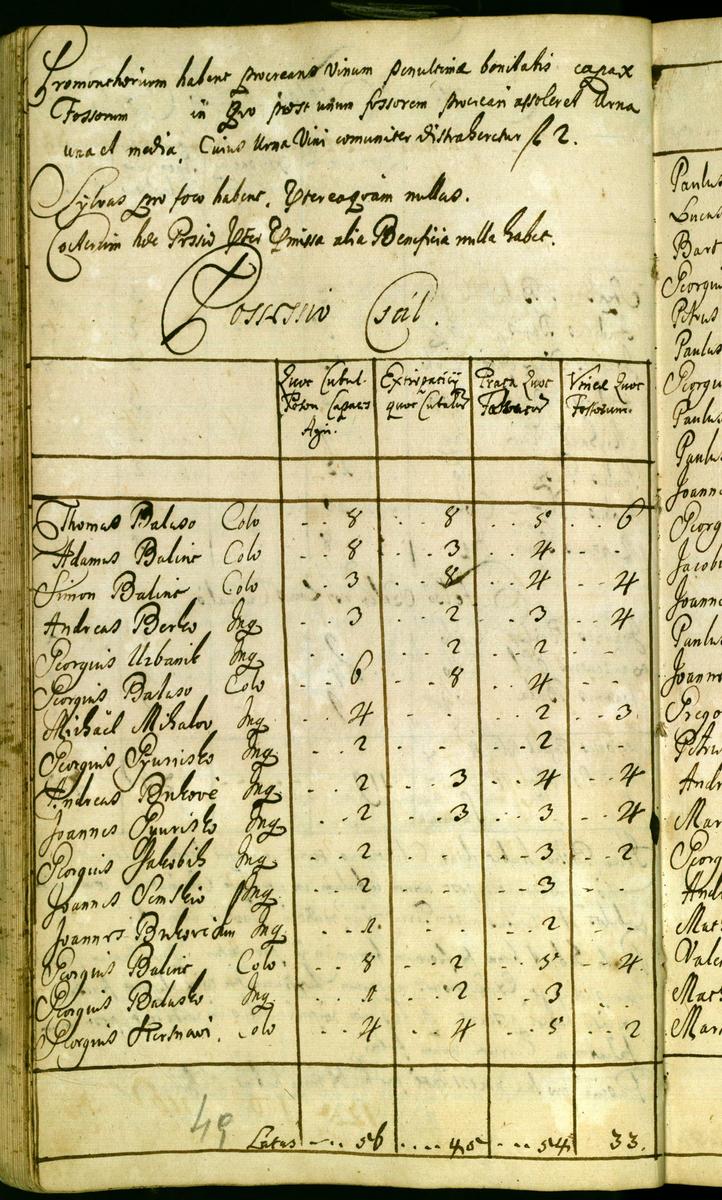 Promonthorium habent procreans Vinum penultimæ bonitatis capax
Fossorum in qvo post unum fossorem procreari assoleret Urna
una et media, Cuius Urna Vini comuniter distraheretur f 2.
Sylvas pro foco habent, Ptereaqvam nullas.
Cœterum hæc Possio Pter Pmissa alia Beneficia nulla habet.
Possessio Csál.
Quot Cubul. Poson Capacis Agri. Extirpatity quot Cubulor Prata Quot Falcator Vineæ Quot Fossorum.
Thomas Balaso Colo - . . 8 . . 8 . . 5 . . 6
Adamus Balint Colo - . . 8 . . 3 . . 4 . . -
Simon Balint Colo - . . 3 . . 8 . . 4 . . 4
Andreas Berko Inq - . . 3 . . 2 . . 3 . . 4
Georgius Urbanik Inq . . . . 2 . . 2 . . -
Georgius Balaso Colo . . 6 . . 8 . . 4
Michäel Mihalov Inq - . . 4 . . - . . 2 . . 3
Georgius Gyurisko Inq - . . 2 . . - . . 2 . . -
Andreas Bukove Inq - . . 2 . . 3 . . 4 . . 4
Joannes Gyurisko Inq - . . 2 . . 3 . . 3 . . 4
Georgius Jakobik Inq . . 2 . . - . . 3 . . 2
Joannes Inq - . . 2 . . - . . 3 . . -
Joannes Inq - . . 1 . . . . 2 . . -
Georgius Balint Colo - . . 8 . . 2 . . 5 . . 4
Georgius Balasko Inq - . . 1 . . 2 . . 3 . . -
Georgius Colo - . . 4 . . 4 . . 5 . . 2
49
Latus - . . . 56 . . . . 45 - . . 54 . . 33.
Paulus
Lucas
Bart
Georgiu
Petrus
Paulus
Georgu
Paulu
Paulu
Joann
Georg
Jacobu
Joanne
Paulu
Joanne
Grego
Petru
Andr
Mar
Georg
Andr
Mat
Vale
Mat
Mar